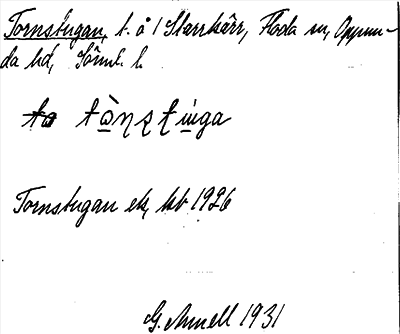 Tornstugan, t. å 1 Starrkärr, Floda sn, Oppun-
da hd, Södml. l.
tɷ̀ṇʂʈɯga
Tornstugan ek, kb 1926
G. Arnell 1931